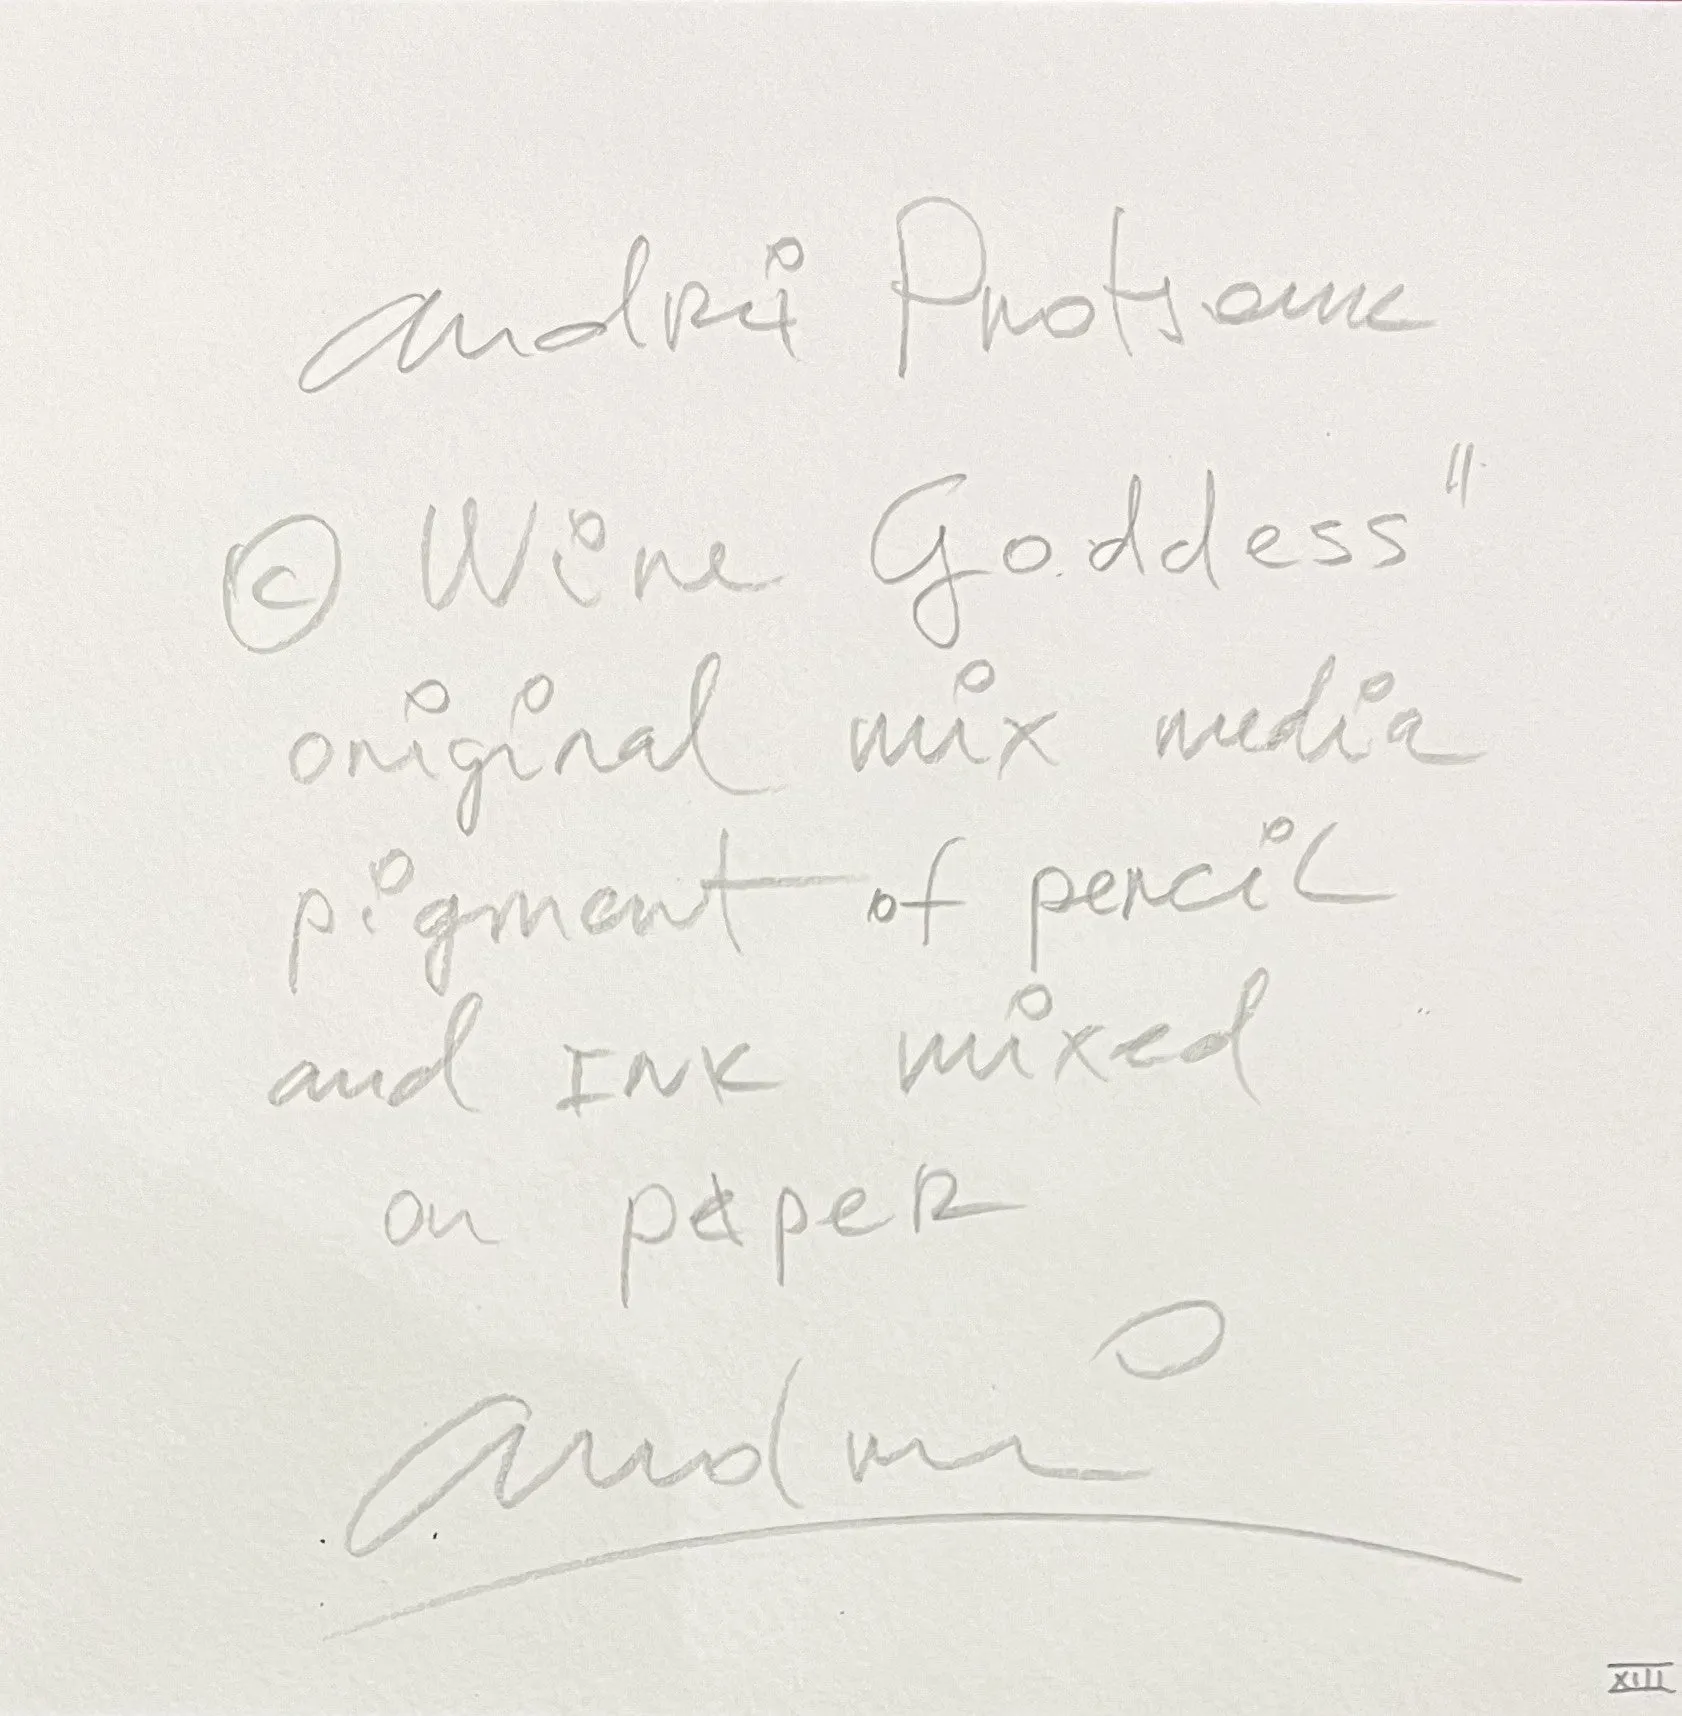 Andrii Protsouk
© Wine Goddess"
original mix media
pigment of pencil
and INK mixed
on papeR
Andrii
XIII